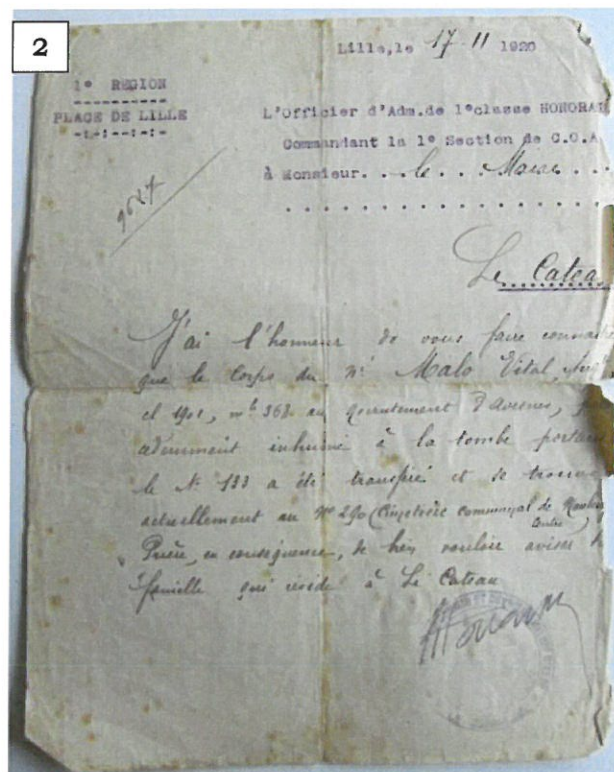 2
Lille, le 17-11 1920
1° REGION
PLACE DE LILLE
-:-:--:-:-
9627
L'Officier d'Adm.de 1°classe HONORA
Commandant la 1° Section de C.O.A
à Monsieur. . le . . Maire . . .
Le Catea
J'ai l'honneur de vous faire connaî
que le Corps du Malo Vital,
cl 1901, mle 368 au recrutement d'Avesnes,
inhumé à la tombe portan
le N° 133 a été transféré et se trouve
actuellement au N° 290 (Cimetière communal de
Prière, en conséquence, de bien vouloir aviser
famille qui réside à Le Cateau